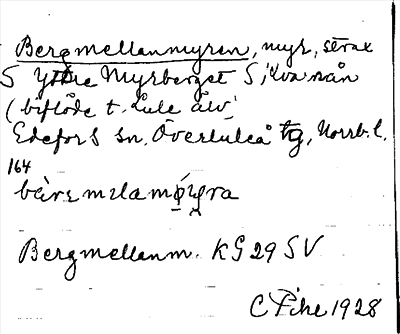 Bergmellanmyren, myr, strax
S Yttre Myrberget S, Kvarnån
(biflöde t. Lule älv,
Edefors sn. Överluleå tg, Norrb. l.
164
bàrs mɛlamø̀yra
Bergmellanm. KG 29 SV
C Pihe 1928